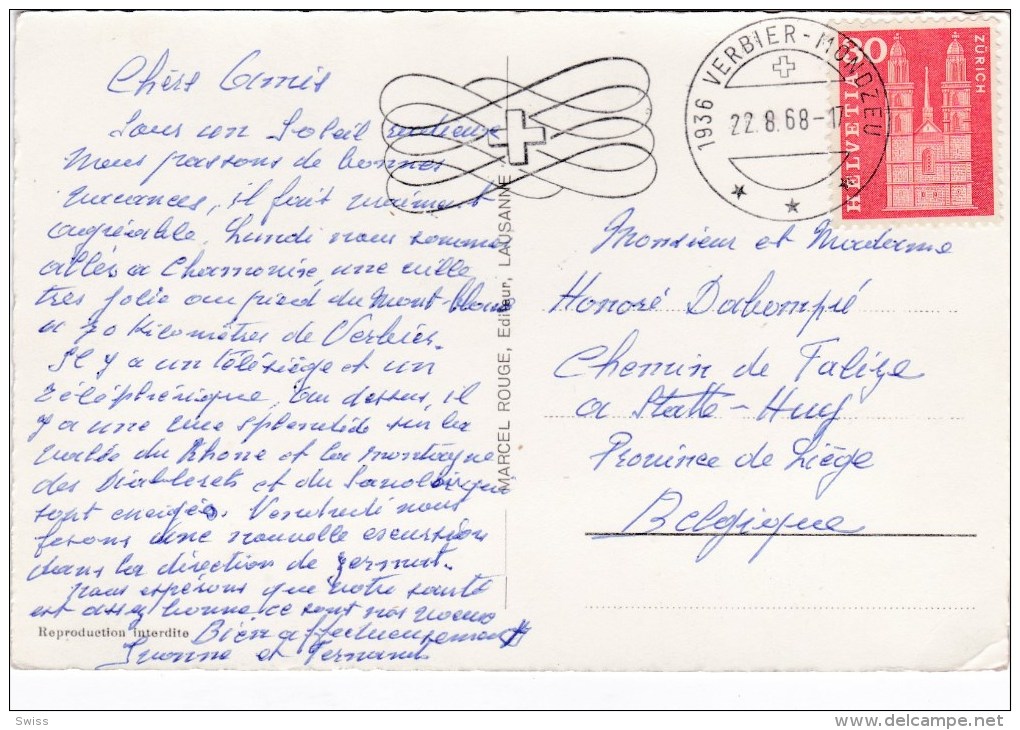 Chèrs Amis
Sous un Soleil radieux
Nous passons de bonnes
vacances, il fait vraiment
agréable, Lundi nous somme
allés a Chamonix une ville
très jolie au pied du Mont-Blanc
a 70 Kilomètres de Verbier.
Il y a un télésiège et un
téléphérique, au dessus, il
y a une vue splendide sur la
vallée du Rhone et la montagne
des Diablerets et du
sont Vendredi nous
ferons une nouvelle escursion
dans la direction de Zermat.
nous espérons que votre santé
est assez bonne ce sont nos voeux
Bien affectueusement
Ivonne et Fernand
Reproduction interdite
MARCEL ROUGE, Editeur, LAUSANNE
1936 VERBIER-MONDZEU
22.8.68-17
30
HELVETIA
ZÜRICH
Monsieur et Madame
Honoré Dabompré
Chemin de Falize
a Statte-Huy
Province de Liège
Belgique
Swiss
www.delcampe.net